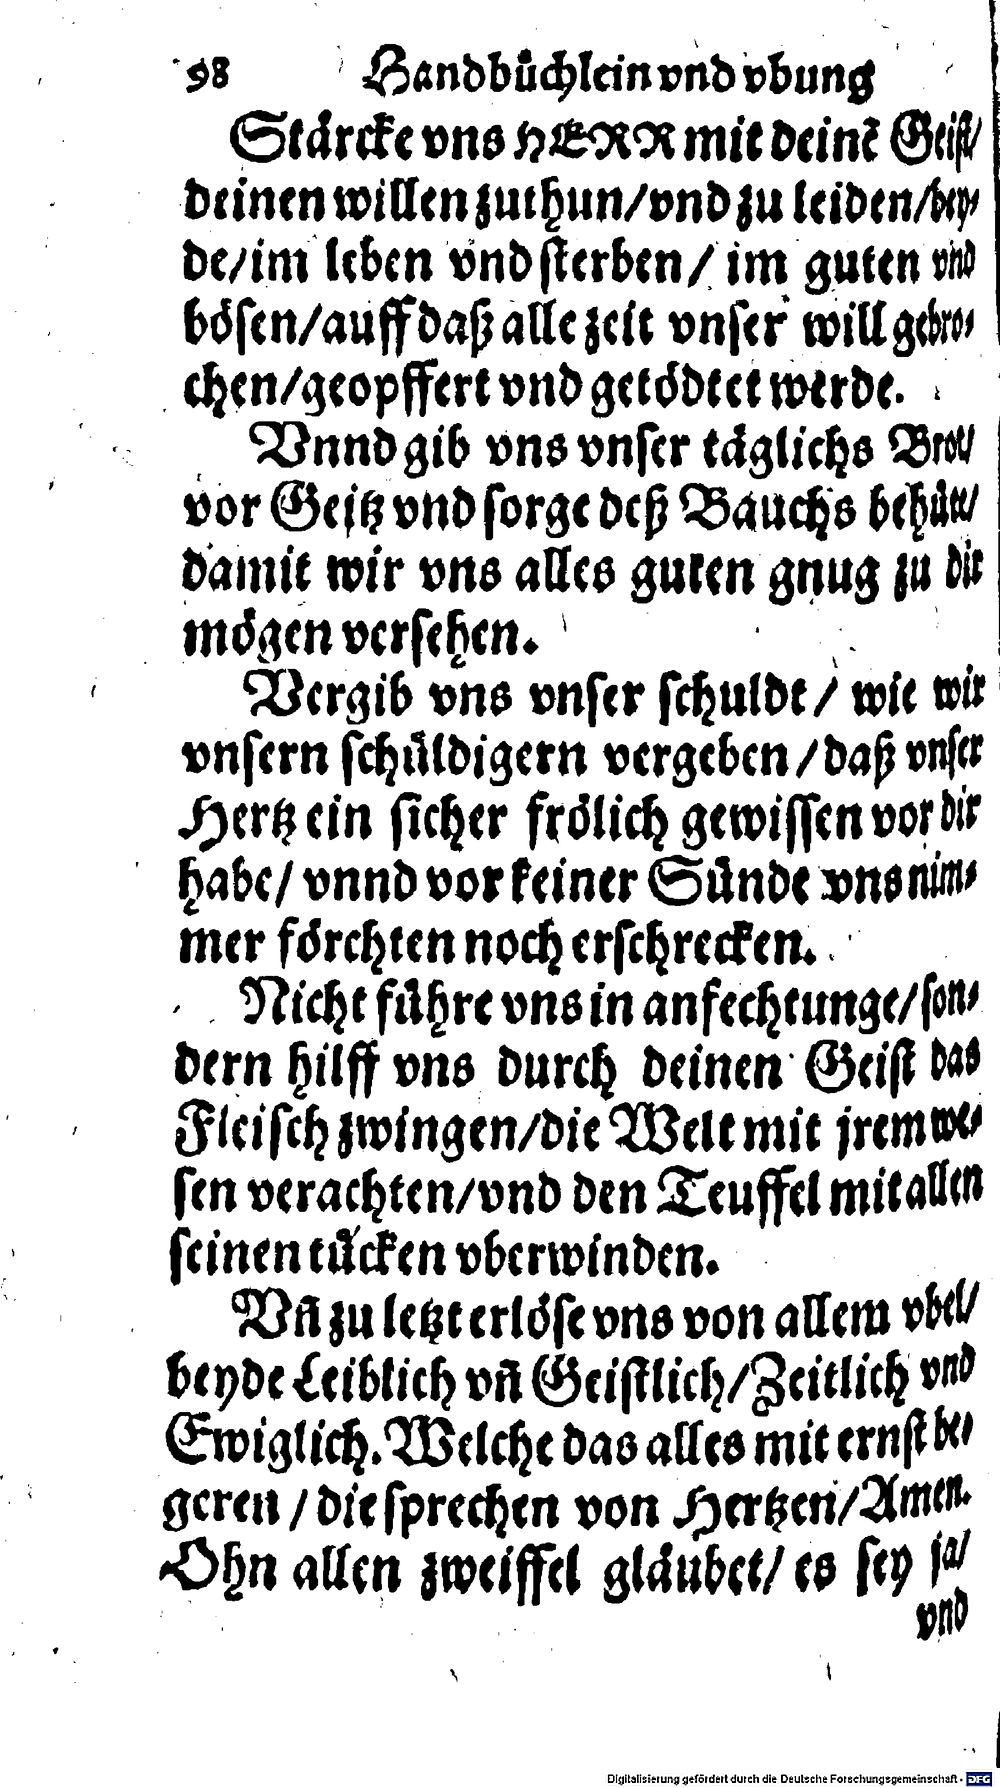 98 Handbüchlein vnd vbung
Stärcke vns HERR mit deinē Geist/
deinen willen zuthun/vnd zu leiden/bey-
de/im leben vnd sterben/ im guten vnd
bösen/auff daß alle zeit vnser will gebro-
chen/geopffert vnd getödtet werde.
Vnnd gib vns vnser täglichs Brot/
vor Geitz vnd sorge deß Bauchs behüte/
damit wir vns alles guten gnug zu dir
mögen versehen.
Vergib vns vnser schulde/ wie wir
vnsern schüldigern vergeben/daß vnser
Hertz ein sicher frölich gewissen vor dir
habe/ vnnd vor keiner Sünde vns nim-
mer förchten noch erschrecken.
Nicht führe vns in anfechtunge/son-
dern hilff vns durch deinen Geist das
Fleisch zwingen/die Welt mit jrem we-
sen verachten/vnd den Teuffel mit allen
seinen tücken vberwinden.
Vñ zu letzt erlöse vns von allem vbel/
beyde Leiblich vñ Geistlich/Zeitlich vnd
Ewiglich. Welche das alles mit ernst be-
geren/die sprechen von Hertzen/Amen.
Ohn allen zweiffel gläubet/ es sey ja/
vnd
Digitalisierung gefördert durch die Deutsche Forschungsgemeinschaft - DFG